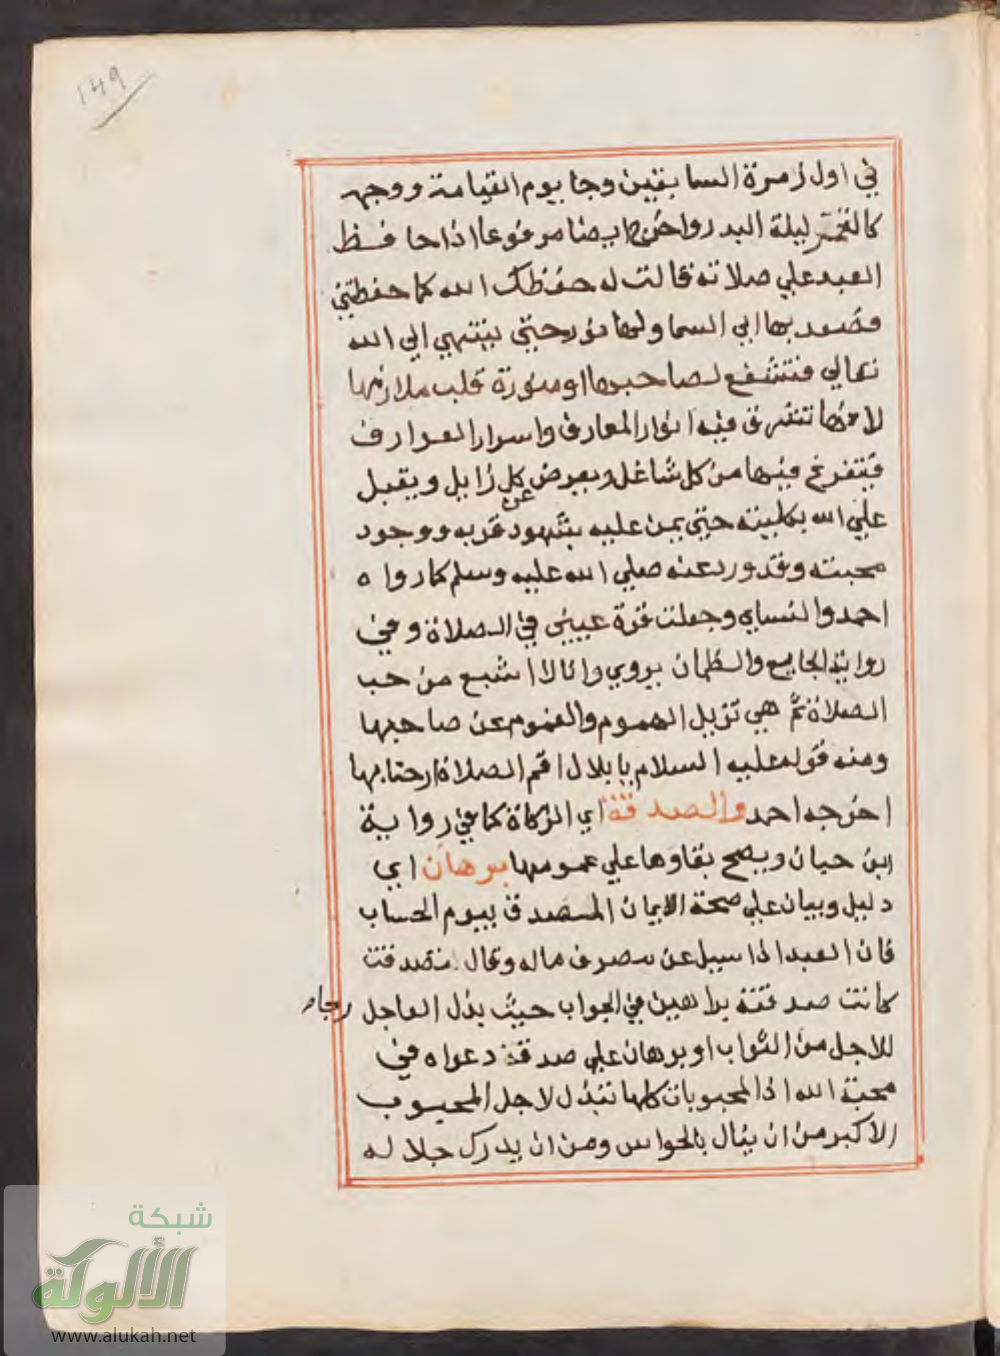 149
في اول زمرة السابقين وجا يوم القيامة ووجهه
كالقمر ليلة البدر واخرج ايضا مرفوعا اذا حافظ
العبد علي صلاته قالت له حفظك الله كما حفظتني
فصعد بها الي السما ولها نور حتي ينتهي الي الله
تعالي فتشفع لصاحبها او منورة قلب ملازمها
لانها تشرق فيه انوار المعارف واسرار العوارف
فيتفرغ فيها من كل شاغل ويعرض عن كل زايل ويقبل
علي الله بكليته حتي يمن عليه بشهود قربه ووجود
محبته وقد ورد عنه صلي الله عليه وسلم كما رواه
احمد والنساي وجعلت قرة عيني في الصلاة وفي
رواية الجايع والظمان يروي وانا لا اشبع من حب
الصلاة ثم هي تزيل الهموم والغموم عن صاحبها
ومنه قوله عليه السلام يا بلال اقم الصلاة ارحنا بها
اخرجه احمد والصدقة اي الزكاة كما في رواية
ابن حبان ويصح بقاوها علي عمومها برهان اي
دليل وبيان علي صحة الايمان المصدق بيوم الحساب
فان العبد اذا سيل عن مصرف ماله وقال تصدقت
كانت صدقته براهين في الجواب حيث بذل العاجل رجاء
للاجل من الثواب او برهان علي صدقة دعواه في
محبة الله اذ المحبوبات كلها تبذل لاجل المحبوب
الاكبر من ان ينال بالحواس ومن ان يدرك جلاله
شبكة
الألوكة
www.alukah.net